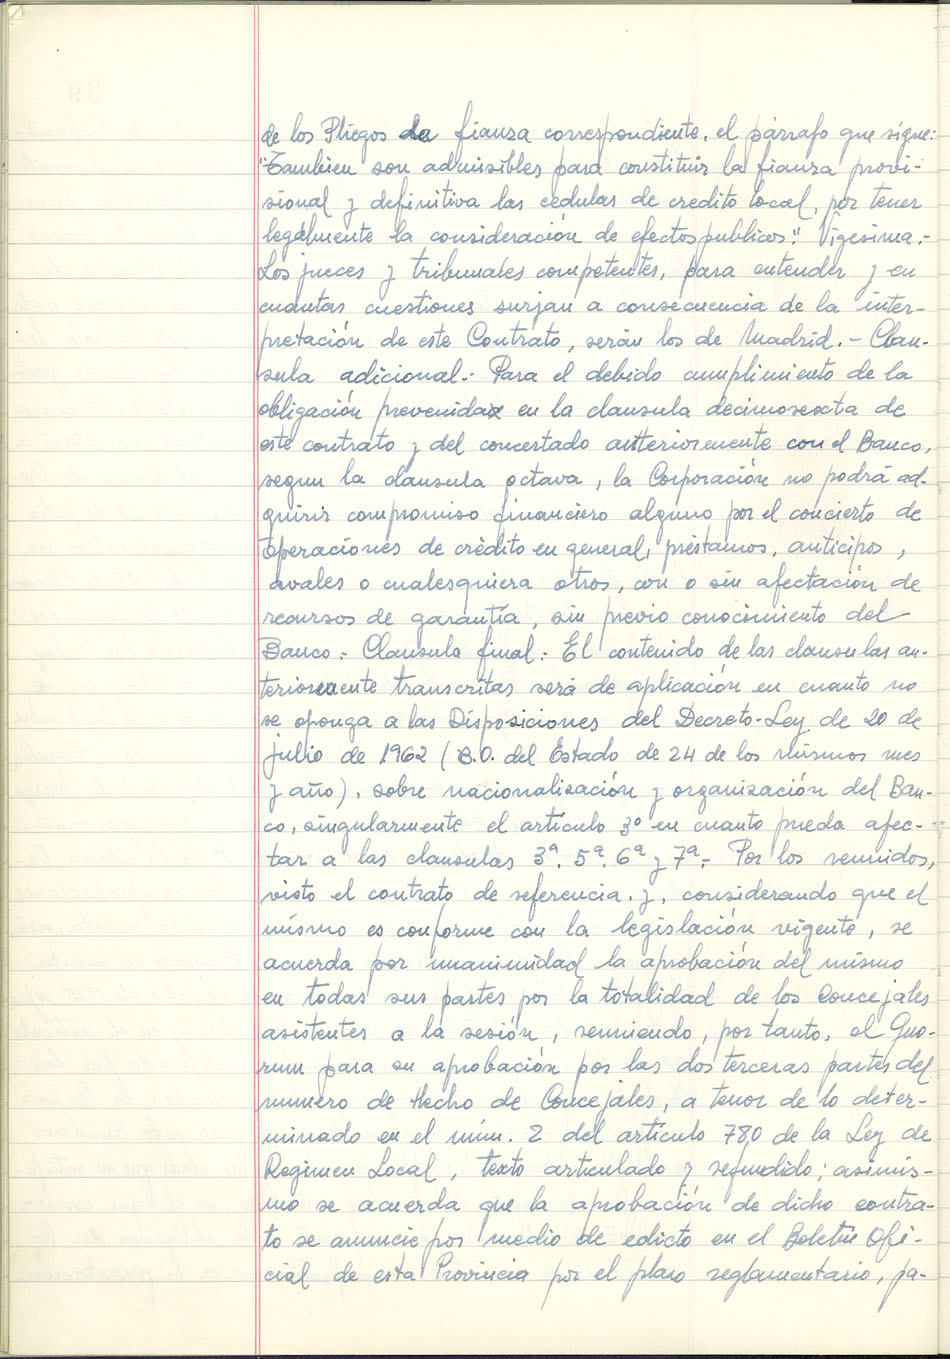 de los Pliegos de fianza correspondiente, el párrafo que sigue:
"Tambien son admisibles para constituir la fianza provi-
sional y definitiva las cedulas de credito local, por tener
legalmente la consideración de efectos publicos". Vigesima.-
Los jueces y tribunales competentes, para entender y en
cuantas cuestiones surjan a consecuencia de la inter-
pretación de este Contrato, serán los de Madrid.- Clau-
sula adicional.- Para el debido cumplimiento de la
obligación prevenida en la clausula decimosexta de
este contrato y del concertado anteriormente con el Banco,
segun la clausula octava, la Corporación no podrá ad-
quirir compromiso financiero alguno por el concierto de
operaciones de crédito en general, préstamos, anticipos,
avales o cualesquiera otros, con o sin afectación de
recursos de garantía, sin previo conocimiento del
Banco.- Clausula final.- El contenido de las clausulas an-
teriormente transcritas será de aplicación en cuanto no
se oponga a las Disposiciones del Decreto-Ley de 20 de
julio de 1962 (B.O. del Estado de 24 de los mismos mes
y año), sobre nacionalización y organización del Ban-
co, singularmente el artículo 3º en cuanto pueda afec-
tar a las clausulas 3ª, 5ª, 6ª y 7ª.- Por los reunidos,
visto el contrato de referencia, y, considerando que el
mismo es conforme con la legislación vigente, se
acuerda por unanimidad la aprobación del mismo
en todas sus partes por la totalidad de los Concejales
asistentes a la sesión, reuniendo, por tanto, el Quo-
rum para su aprobación por las dos terceras partes del
numero de Hecho de Concejales, a tenor de lo deter-
minado en el núm. 2 del artículo 780 de la Ley de
Regimen Local, texto articulado y refundido; asimis-
mo se acuerda que la aprobación de dicho contra-
to se anuncie por medio de edicto en el Boletín Ofi-
cial de esta Provincia por el plazo reglamentario, pa-